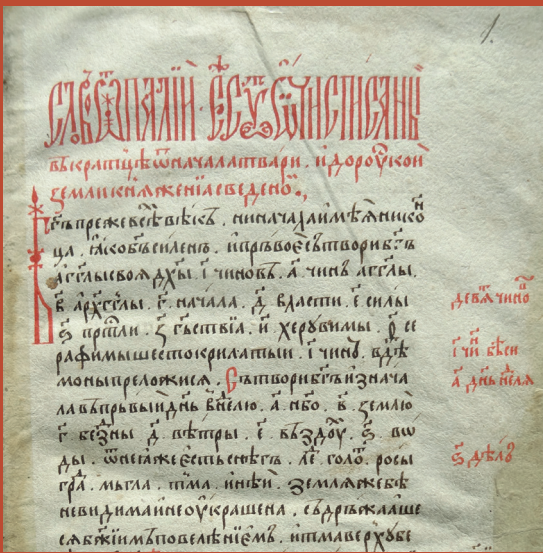 1.
въкратцѣ ѿ начала твари. и до роуⷭкой
земли кнѧженїа сведено.,
преже всѣⷯ вѣкъ. ни начала имѣѧ ни коⷩ
ца. ꙗко б҃ъ силенъ. и прьвое сътвори б҃гъ
агг҃лы своѧ дх҃ы. і҃ чиновъ. а҃ чинъ агг҃лы.
в҃ арх҃гг҃лы. г҃ начала. д҃ власти. е҃ силы
ѕ҃ прⷭтли. з҃ гс҃ьствїа. и҃ херувимы. ѳ҃ се
рафимы шестокрилатыи. і҃ чиноⷡ. в дѣ
моны преложисѧ. Сътвори б҃гъ изнача
ла въ прьвыи дн҃ь в нⷣелю. а҃ нб҃о. в҃ землю
г҃ безⷣны д҃ вѣтры. е҃ въздоуⷯ. ѕ҃ во
ды. ѿ неꙗже есть снѣгъ. леⷣ голоⷮ. росы
граⷣ. мьгла. тма. инѣи. Землѧ же бѣ
невидима и не оукрашена. съдрьжаше
сѧ б҃жїимъ повелѣнїемъ. и тма верху бе
девѧⷮ чиноⷡ
і҃ чиⷩ бѣси
а҃ дн҃ь неⷣлѧ
ѕ҃ дѣлъ